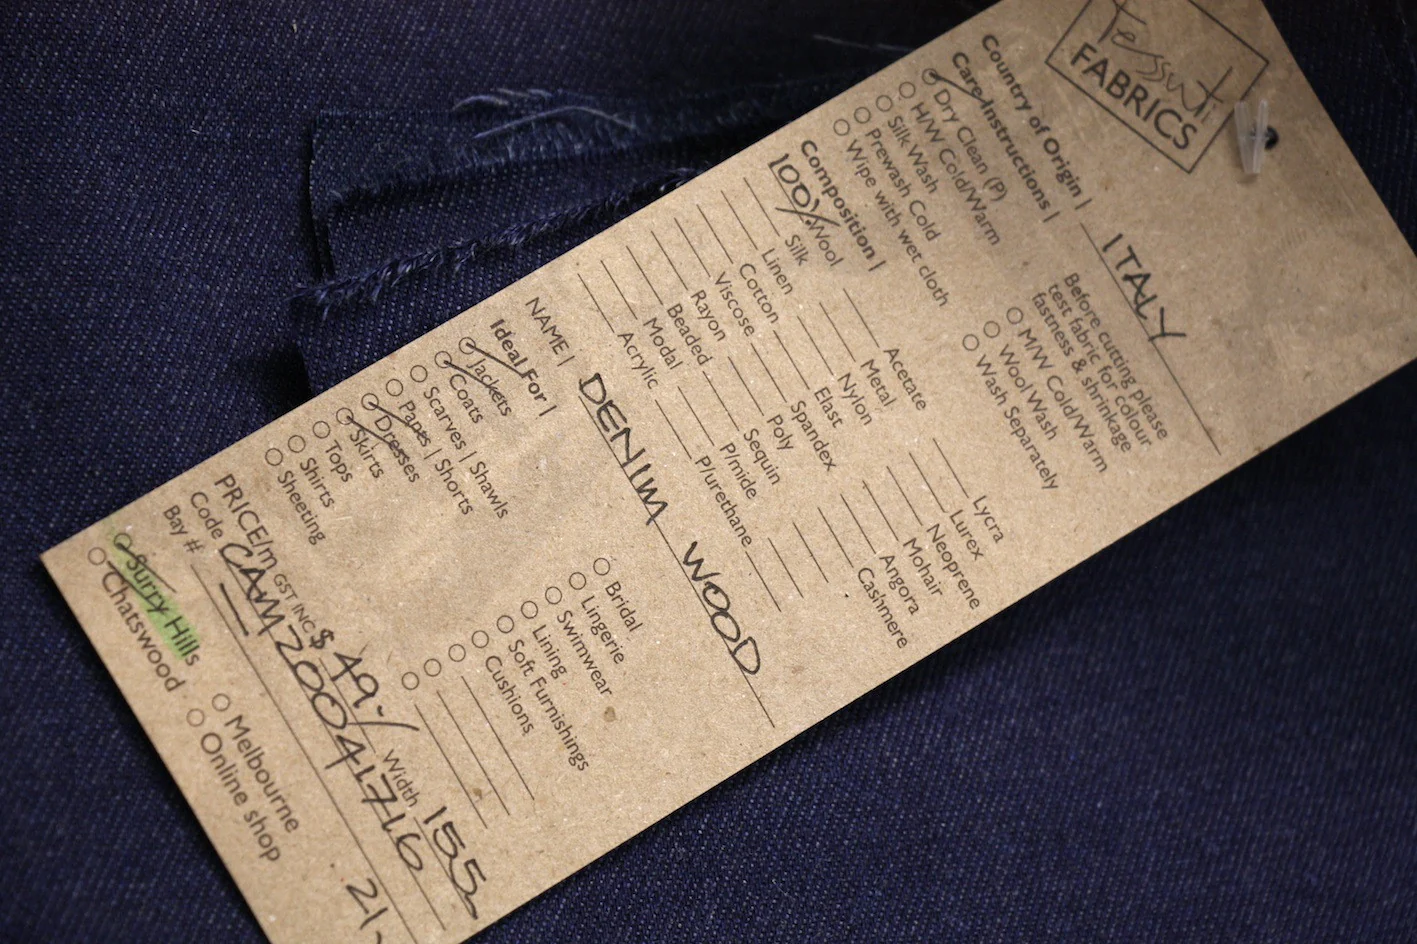 Tessuti
FABRICS
Country of Origin | ITALY
Care Instructions |
Dry Clean (P)
H/W Cold/Warm
Silk Wash
Prewash Cold
Wipe with wet cloth
Before cutting please
test fabric for colour
fastness & shrinkage
M/W Cold/Warm
Wool Wash
Wash Separately
Composition |
100% Wool Acetate Lycra
Silk Metal Lurex
Linen Nylon Neoprene
Cotton Elast Mohair
Viscose Spandex Angora
Rayon Poly Cashmere
Beaded Sequin
Modal P/mide
Acrylic P/urethane
NAME | DENIM WOOD
Ideal For |
Jackets Bridal
Coats Lingerie
Scarves | Shawls Swimwear
Pants | Shorts Lining
Dresses Soft Furnishings
Skirts Cushions
Tops
Shirts
Sheeting
PRICE/m GST INC $ 49.- Width 155
Code CAM20041716
Bay # 21
Surry Hills Melbourne
Chatswood Online shop